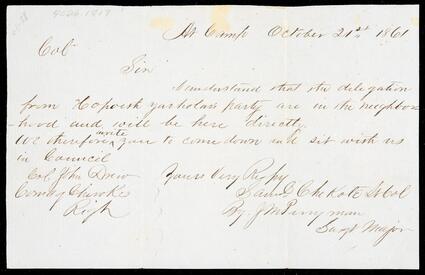 4026.1817
At Camp October 21st 1861
Col
Sir
I understand that the delegation
from Hopoieth yarholas party are in the neighbor
-hood and will be here directly,
We therefore invite you to come down and sit with us
in Council
Col. John Drew
Comdg Cherokee
Regt
Yours Very Rspy
Saml Chekote Lt Col
By. J M Perryman
Sargt Major